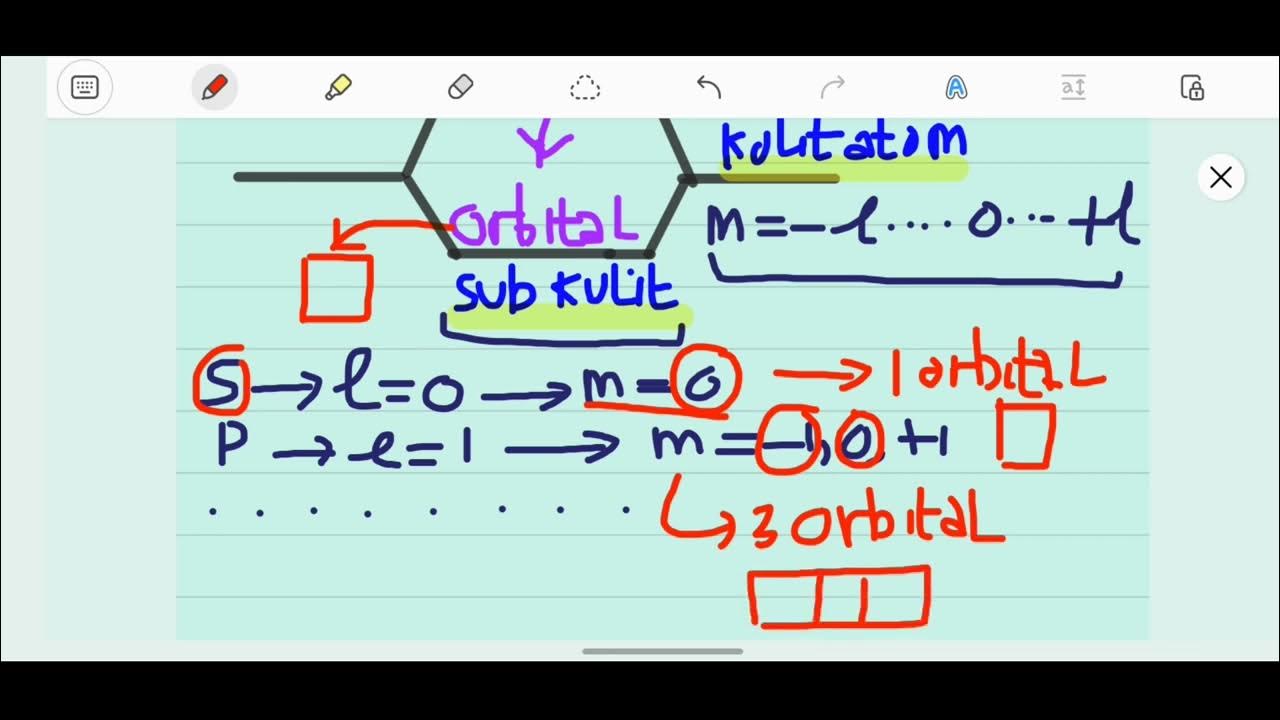 A
a
kulit atom
orbital
m = -l .... 0 ... +l
sub kulit
S → l = 0 → m = 0 → 1 orbital
P → l = 1 → m = -1, 0, +1
. . . . . . . . ↳ 3 orbital